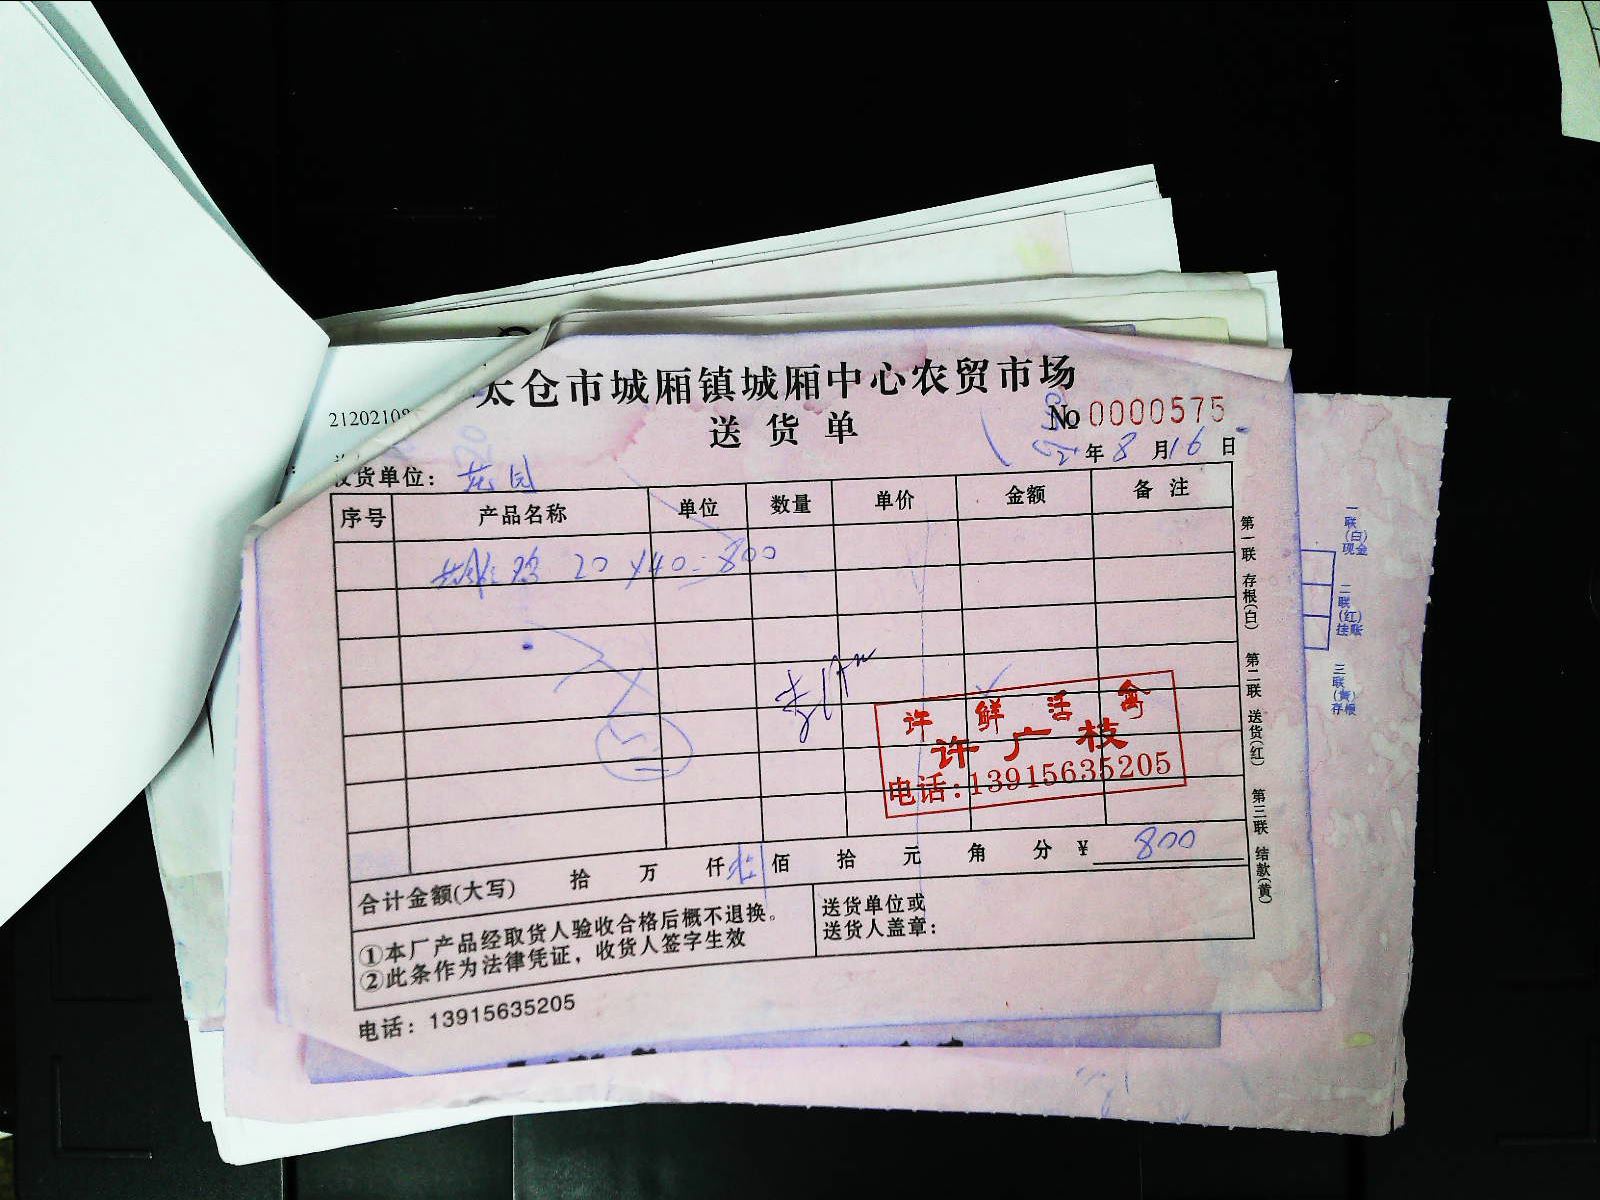 太仓市城厢镇城厢中心农贸市场
送货单
No 0000575
2120210
年 8 月 16 日
收货单位: 花园
序号 产品名称 单位 数量 单价 金额 备注
鸡 20 × 40 = 800
许鲜活禽
许广枝
电话:13915635205
合计金额(大写) 拾 万 仟 佰 拾 元 角 分 ¥ 800
①本厂产品经取货人验收合格后概不退换。
②此条作为法律凭证，收货人签字生效
送货单位或
送货人盖章:
电话: 13915635205
第一联 存根(白) 第二联 送货(红) 第三联 结款(黄)
一联(白)现金
二联(红)挂账
三联(黄)存根